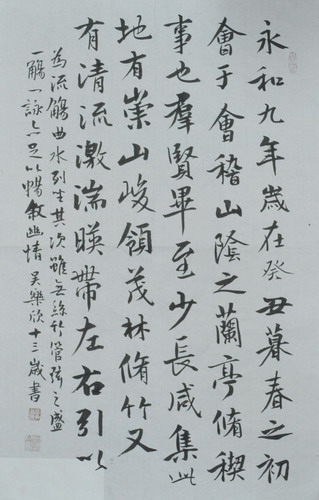 永和九年歲在癸丑暮春之初
會于會稽山陰之蘭亭脩稧
事也羣賢畢至少長咸集此
地有崇山峻領茂林脩竹又
有清流激湍暎帶左右引以
為流觴曲水列坐其次雖無絲竹管弦之盛
一觴一詠亦足以暢敘幽情 吴樂欣十三歲書